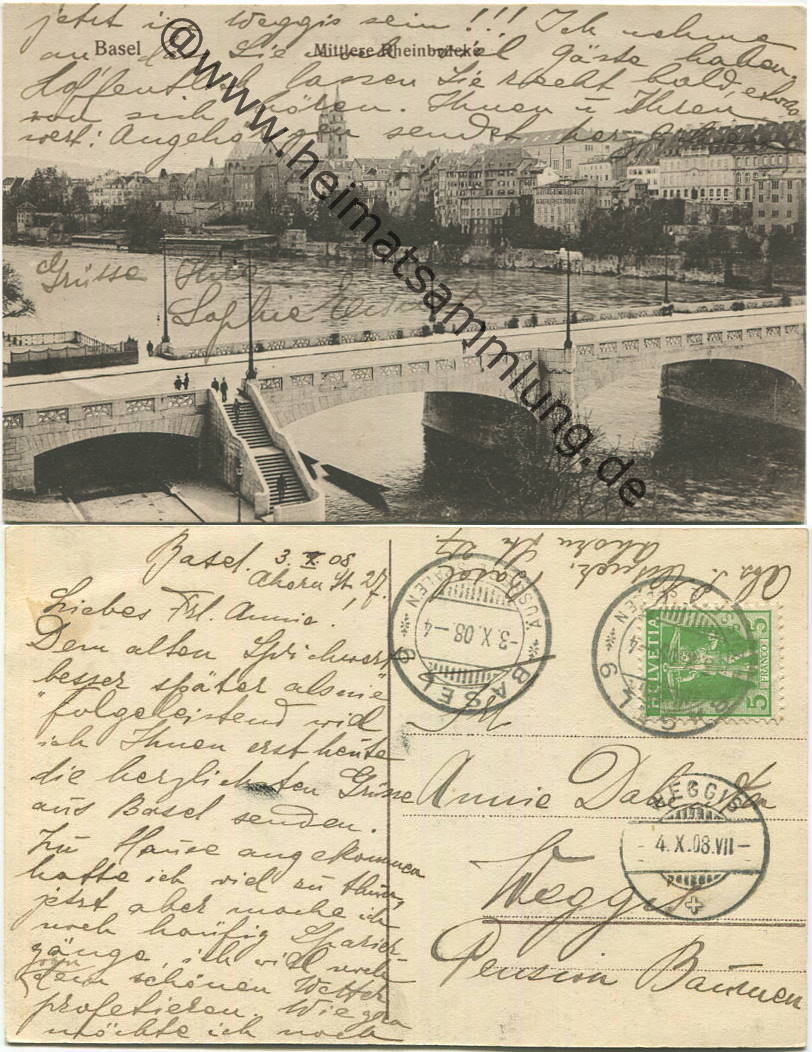 jetzt in Weggis sein!!! Ich nehme
an daß Sie noch viel Gäste haben.
Hoffentlich lassen Sie recht bald, etwas
von sich hören. Ihnen u Ihren
wert: Angehörigen sendet herzl.
Basel
Mittlere Rheinbrücke
Grüsse Ihre
Sophie
@www.heimatsammlung.de
Basel. 3. X. 08
Ahorn St. 27.
Liebes Frl. Annie!
Dem alten Sprichwort
besser später als nie
folgeleistend will
ich Ihnen erst heute
die herzlichsten Grüsse
aus Basel senden.
Zu Hause angekommen
hatte ich viel zu thun,
jetzt aber mache ich
noch häufig Spazier-
gänge, ich will noch
von
dem schönen Wetter
profetieren. Wie gern
möchte ich noch
Abs. S.
Ahorn St. 27.
Basel
BASEL 9
AUSLADESTELEN
-3.X.08.-4
BASEL 9
HELVETIA
5
FRANCO
5
Annie
WEGGIS
4.X.08.VII-
Weggis
Pension Baumen